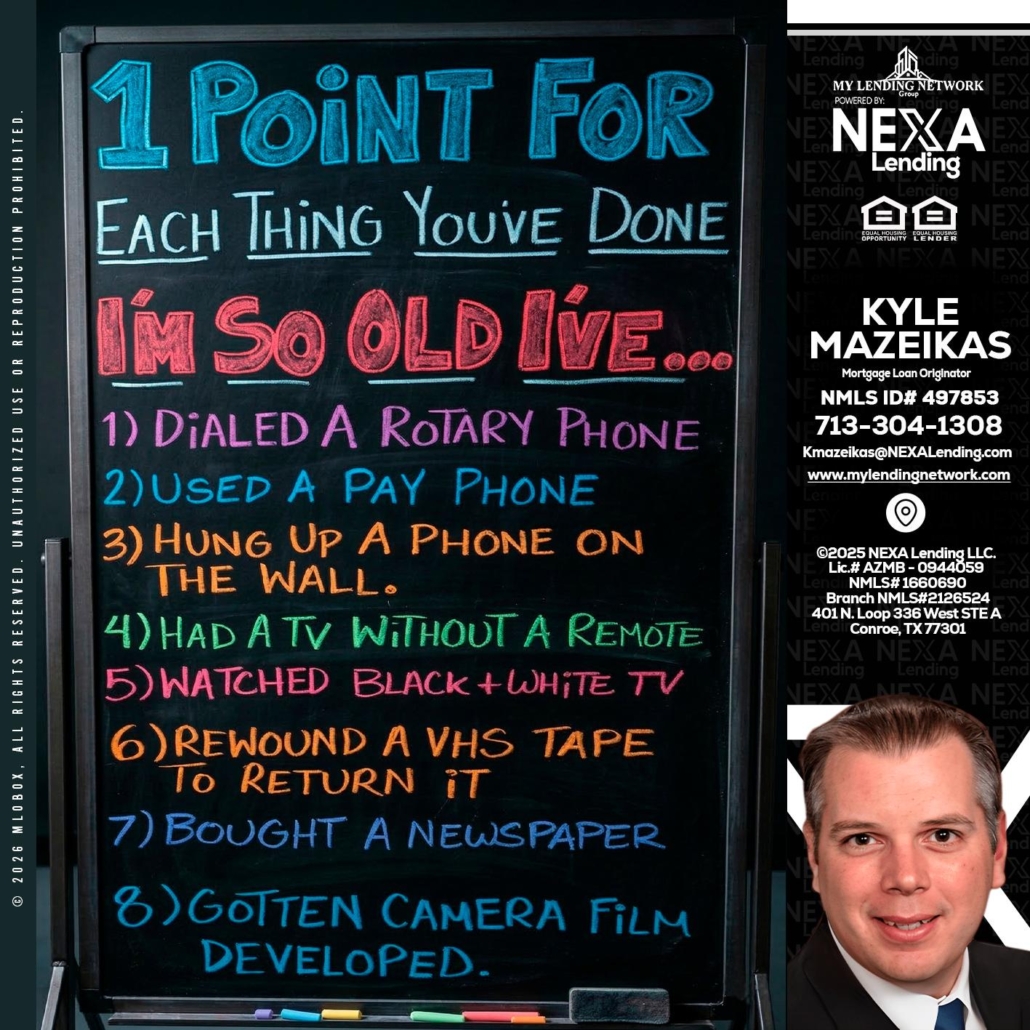 1 POINT FOR
EACH THING YOU'VE DONE
I'M SO OLD I'VE...
1) DIALED A ROTARY PHONE
2) USED A PAY PHONE
3) HUNG UP A PHONE ON
THE WALL.
4) HAD A TV WITHOUT A REMOTE
5) WATCHED BLACK + WHITE TV
6) REWOUND A VHS TAPE
TO RETURN IT
7) BOUGHT A NEWSPAPER
8) GOTTEN CAMERA FILM
DEVELOPED.
© 2026 MLOBOX. ALL RIGHTS RESERVED. UNAUTHORIZED USE OR REPRODUCTION PROHIBITED.
MY LENDING NETWORK
Group
POWERED BY:
NEXA
Lending
EQUAL HOUSING
OPPORTUNITY
EQUAL HOUSING
LENDER
KYLE
MAZEIKAS
Mortgage Loan Originator
NMLS ID# 497853
713-304-1308
Kmazeikas@NEXALending.com
www.mylendingnetwork.com
©2025 NEXA Lending LLC.
Lic.# AZMB - 0944059
NMLS# 1660690
Branch NMLS#2126524
401 N. Loop 336 West STE A
Conroe, TX 77301